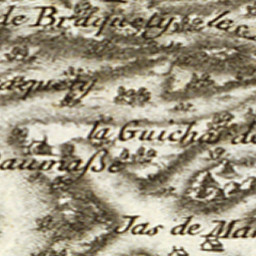 de Braquety les
aquety
la Guicha de
aumaße
Jas de Ma